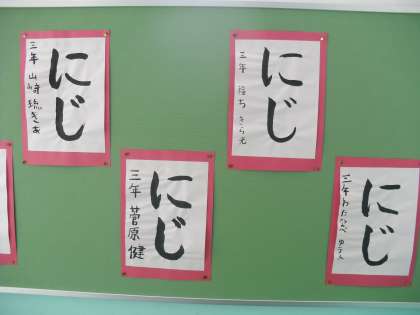 にじ
三年 山崎
にじ
三年
にじ
三年 菅原 健
にじ
三年 わたなべ